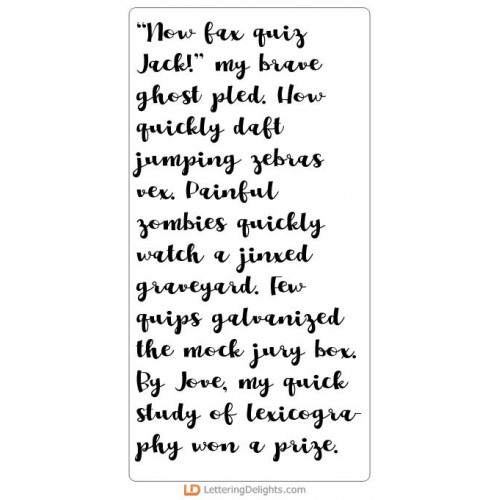 “Now fax quiz
Jack!” my brave
ghost pled. How
quickly daft
jumping zebras
vex. Painful
zombies quickly
watch a jinxed
graveyard. Few
quips galvanized
the mock jury box.
By Jove, my quick
study of lexicogra-
phy won a prize.
LD LetteringDelights.com